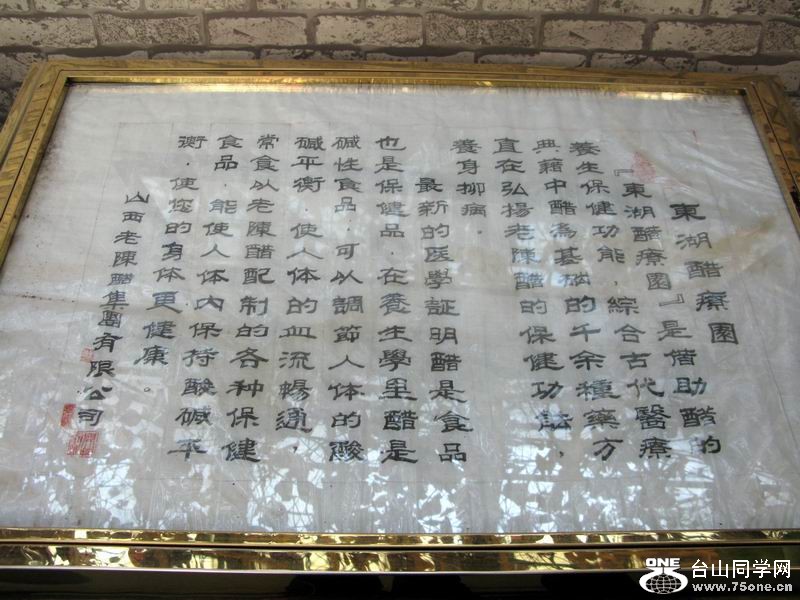 東湖醋療園
『東湖醋療園』是借助醋的
養生保健功能，綜合古代醫療
典藉中醋為基础的千余種藥方
直在弘揚老陳醋的保健功能，
養身柳病．
最新的医學証明醋是食品
也是保健品．在養生學里醋是
碱性食品．可以調節人体的酸
碱平衡．使人体的血流暢通，
常食以老陳醋配制的各种保健
食品．能使人体内保持酸碱平
衡．使您的身体更健康。
山西老陳醋集團有限公司
ONE
台山同学网
www.75one.cn